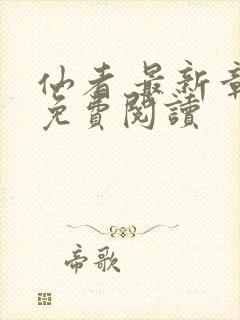 仙者 最新章
免費閱讀
帝歌